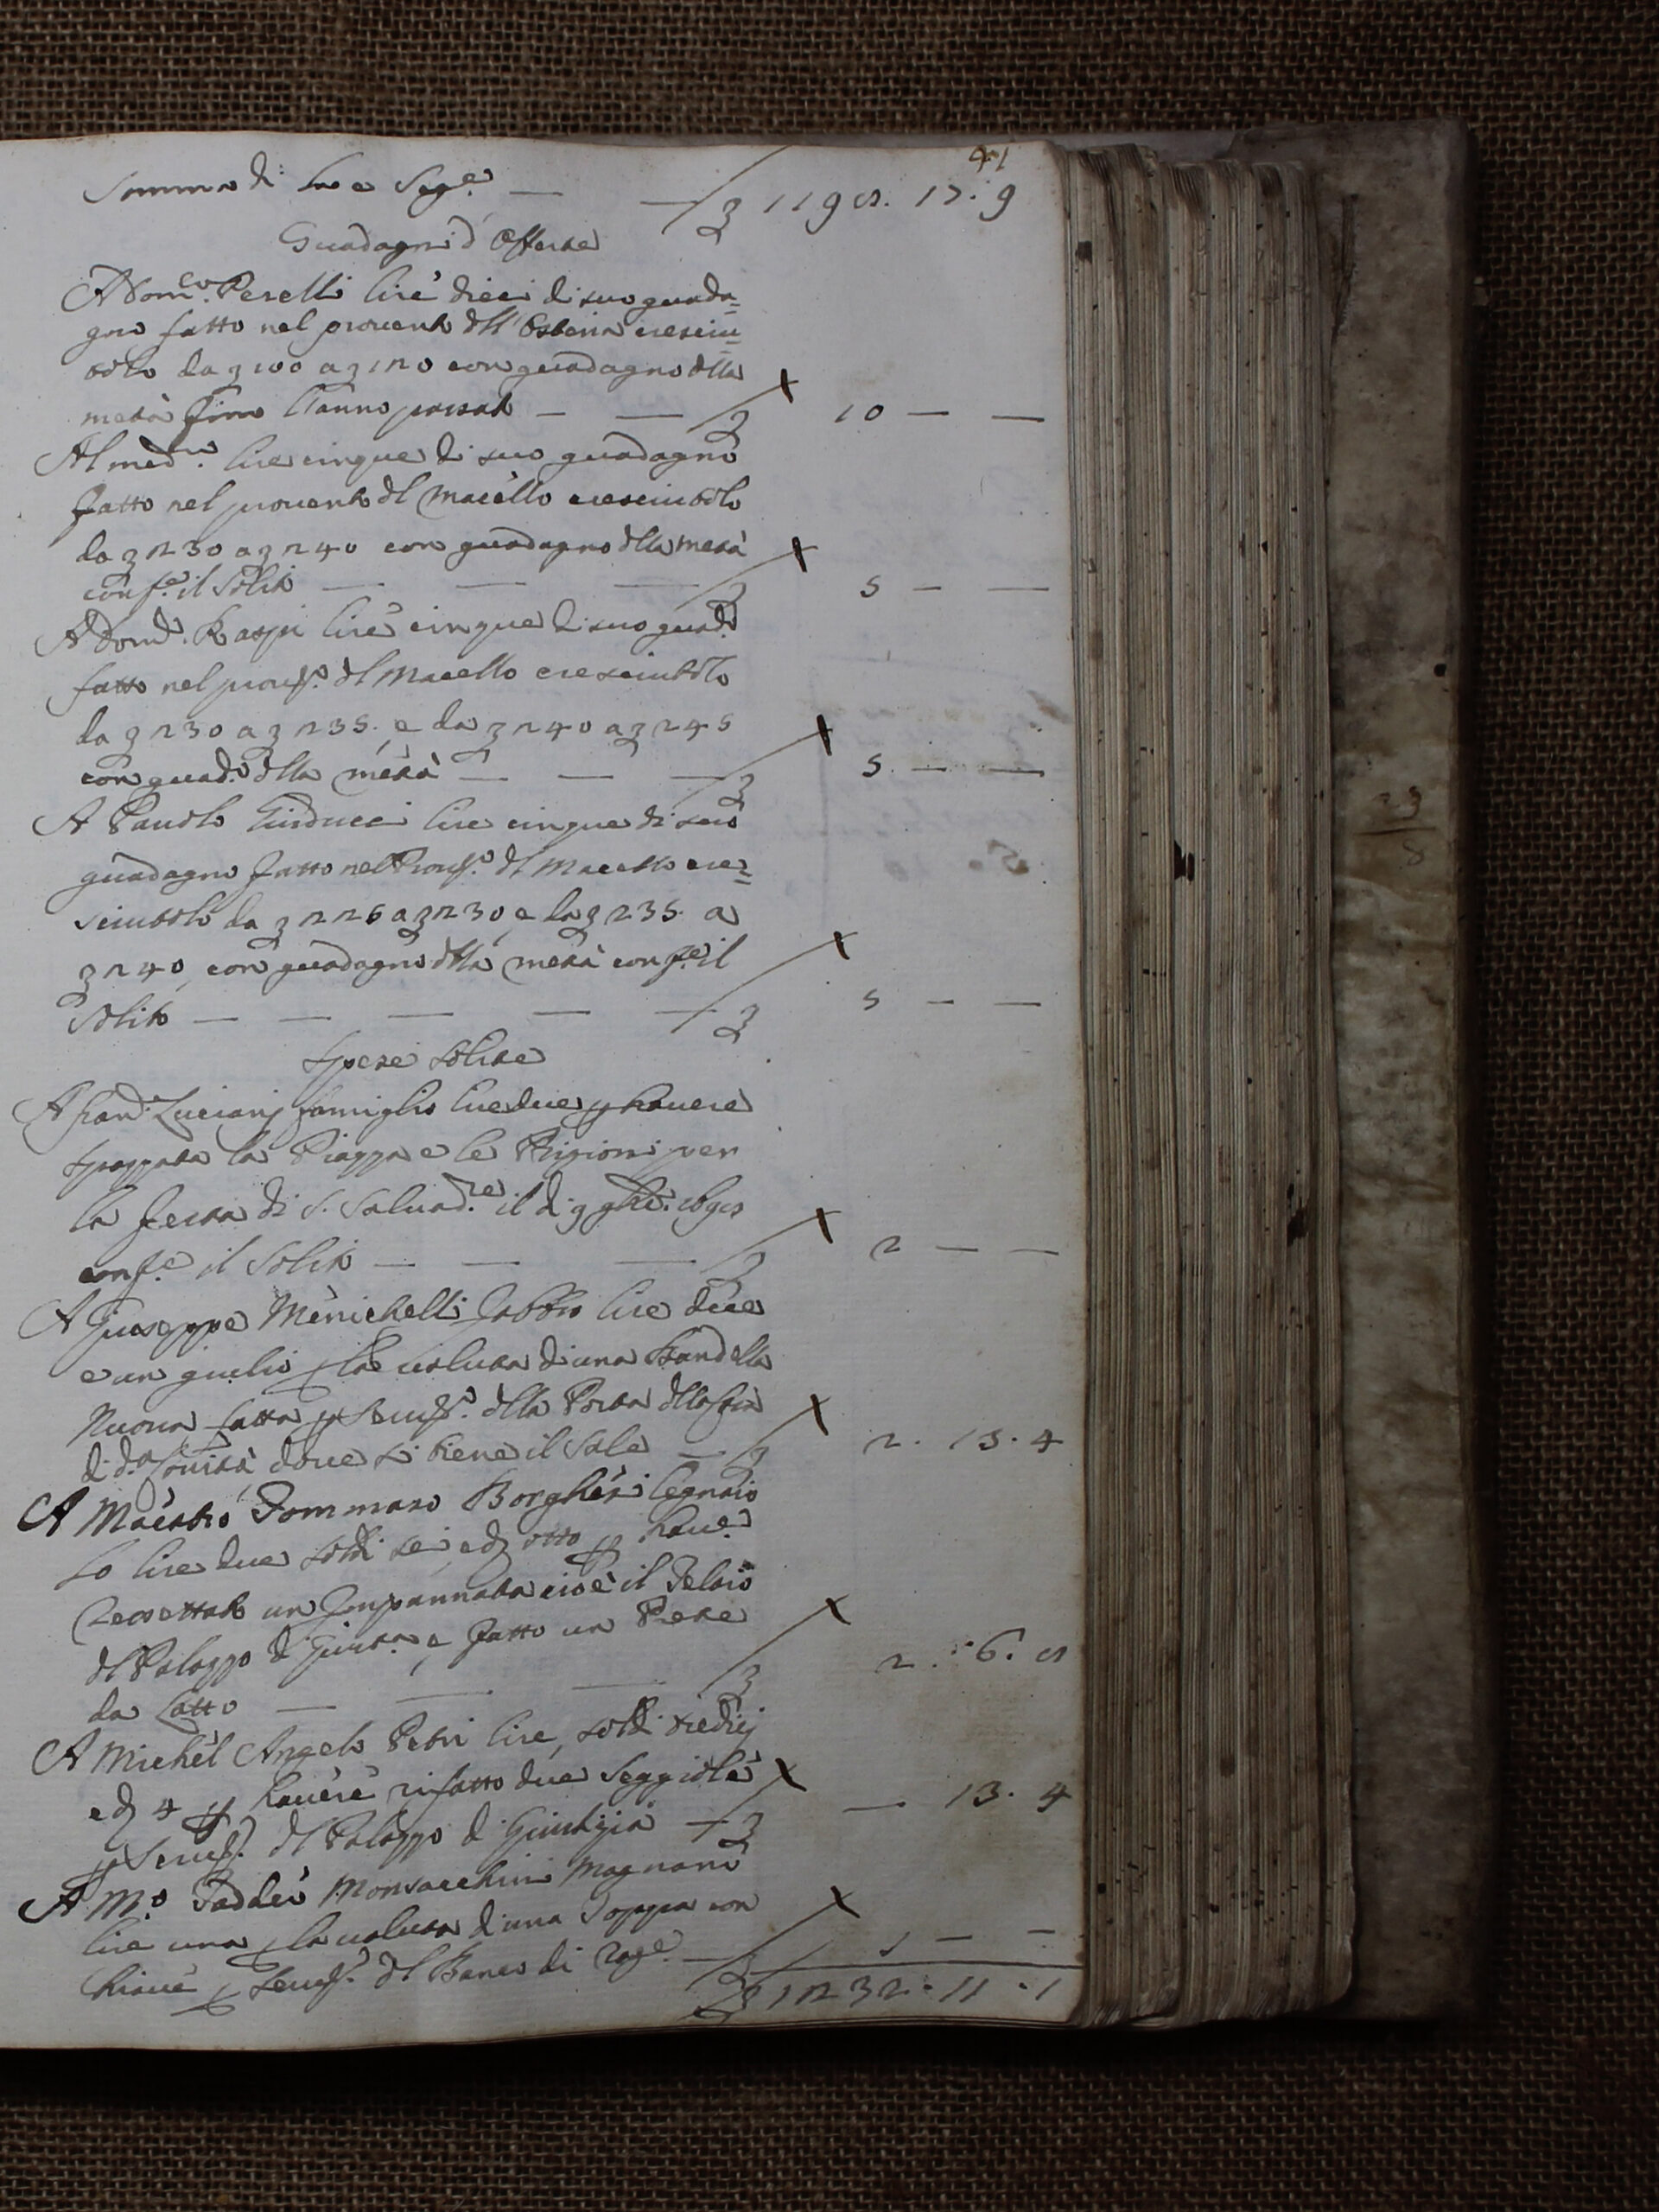 41
Somma di la e Seg.e — — £ 1198. 17. 9
Guadagni d'Offerte
A Dom.co Perelli lire dieci di suo guada=
gno fatto nel provento dll'Osteria cresciu=
tolo da £ 100 a £ 120 con guadagno dlla
metà fino l'anno passato — — £ 10 — —
Al med.mo lire cinque di suo guadagno
fatto nel provento dl Macello cresciutolo
da £ 230 a £ 240 con guadagno dlla metà
conf.e il Solito — — — £ 5 — —
A Dom.co Raspi lire cinque di suo guad.o
fatto nel prou.o dl Macello cresciutolo
da £ 230 a £ 235. e da £ 240 a £ 245
con guad.o dlla metà — — — £ 5. — —
A Pauolo Guiducci lire cinque di suo
guadagno fatto nel Prou.o dl Macello cre=
sciutolo da £ 226 a £ 230, e da £ 235. a
£ 240, con guadagno dlla metà conf.e il
Solito — — — — — £ 5 — —
Spese Solite
A Fran.o Luciani famiglio lire due p hauere
spazzata la Piazza e le Prigioni per
la festa di S. Saluad.re il dì 9 9bre.
conf.e il Solito — — — £ 2 — —
A Giuseppe Menichelli fabbro lire due
e un giulio p la ualuta di una Bandella
Nuoua fatta p Seru.o dlla Porta dlla
di d.a Comità doue si tiene il Sale — £ 2. 13. 4
A Maestro Tommaso Borghesi legnaio
lo lire due soldi sei, e d otto p hau.e
rassettato un Impannata cioè il Telaio
dl Palazzo di Giust.a, e fatto un
da Latto — — — £ 2. 6. 8
A Michel Angelo Petri lire, soldi tredici
e d 4 p hauere rifatto due Seggiole
p Seru.o dl Palazzo di Giustizia — £ — 13. 4
A M.o Taddeo Monsacchini Magnano
lire una p la ualuta d'una Toppa con
chiaue p Seru.o dl Banco di Rag.e — £ 1 — —
£ 1232. 11. 1